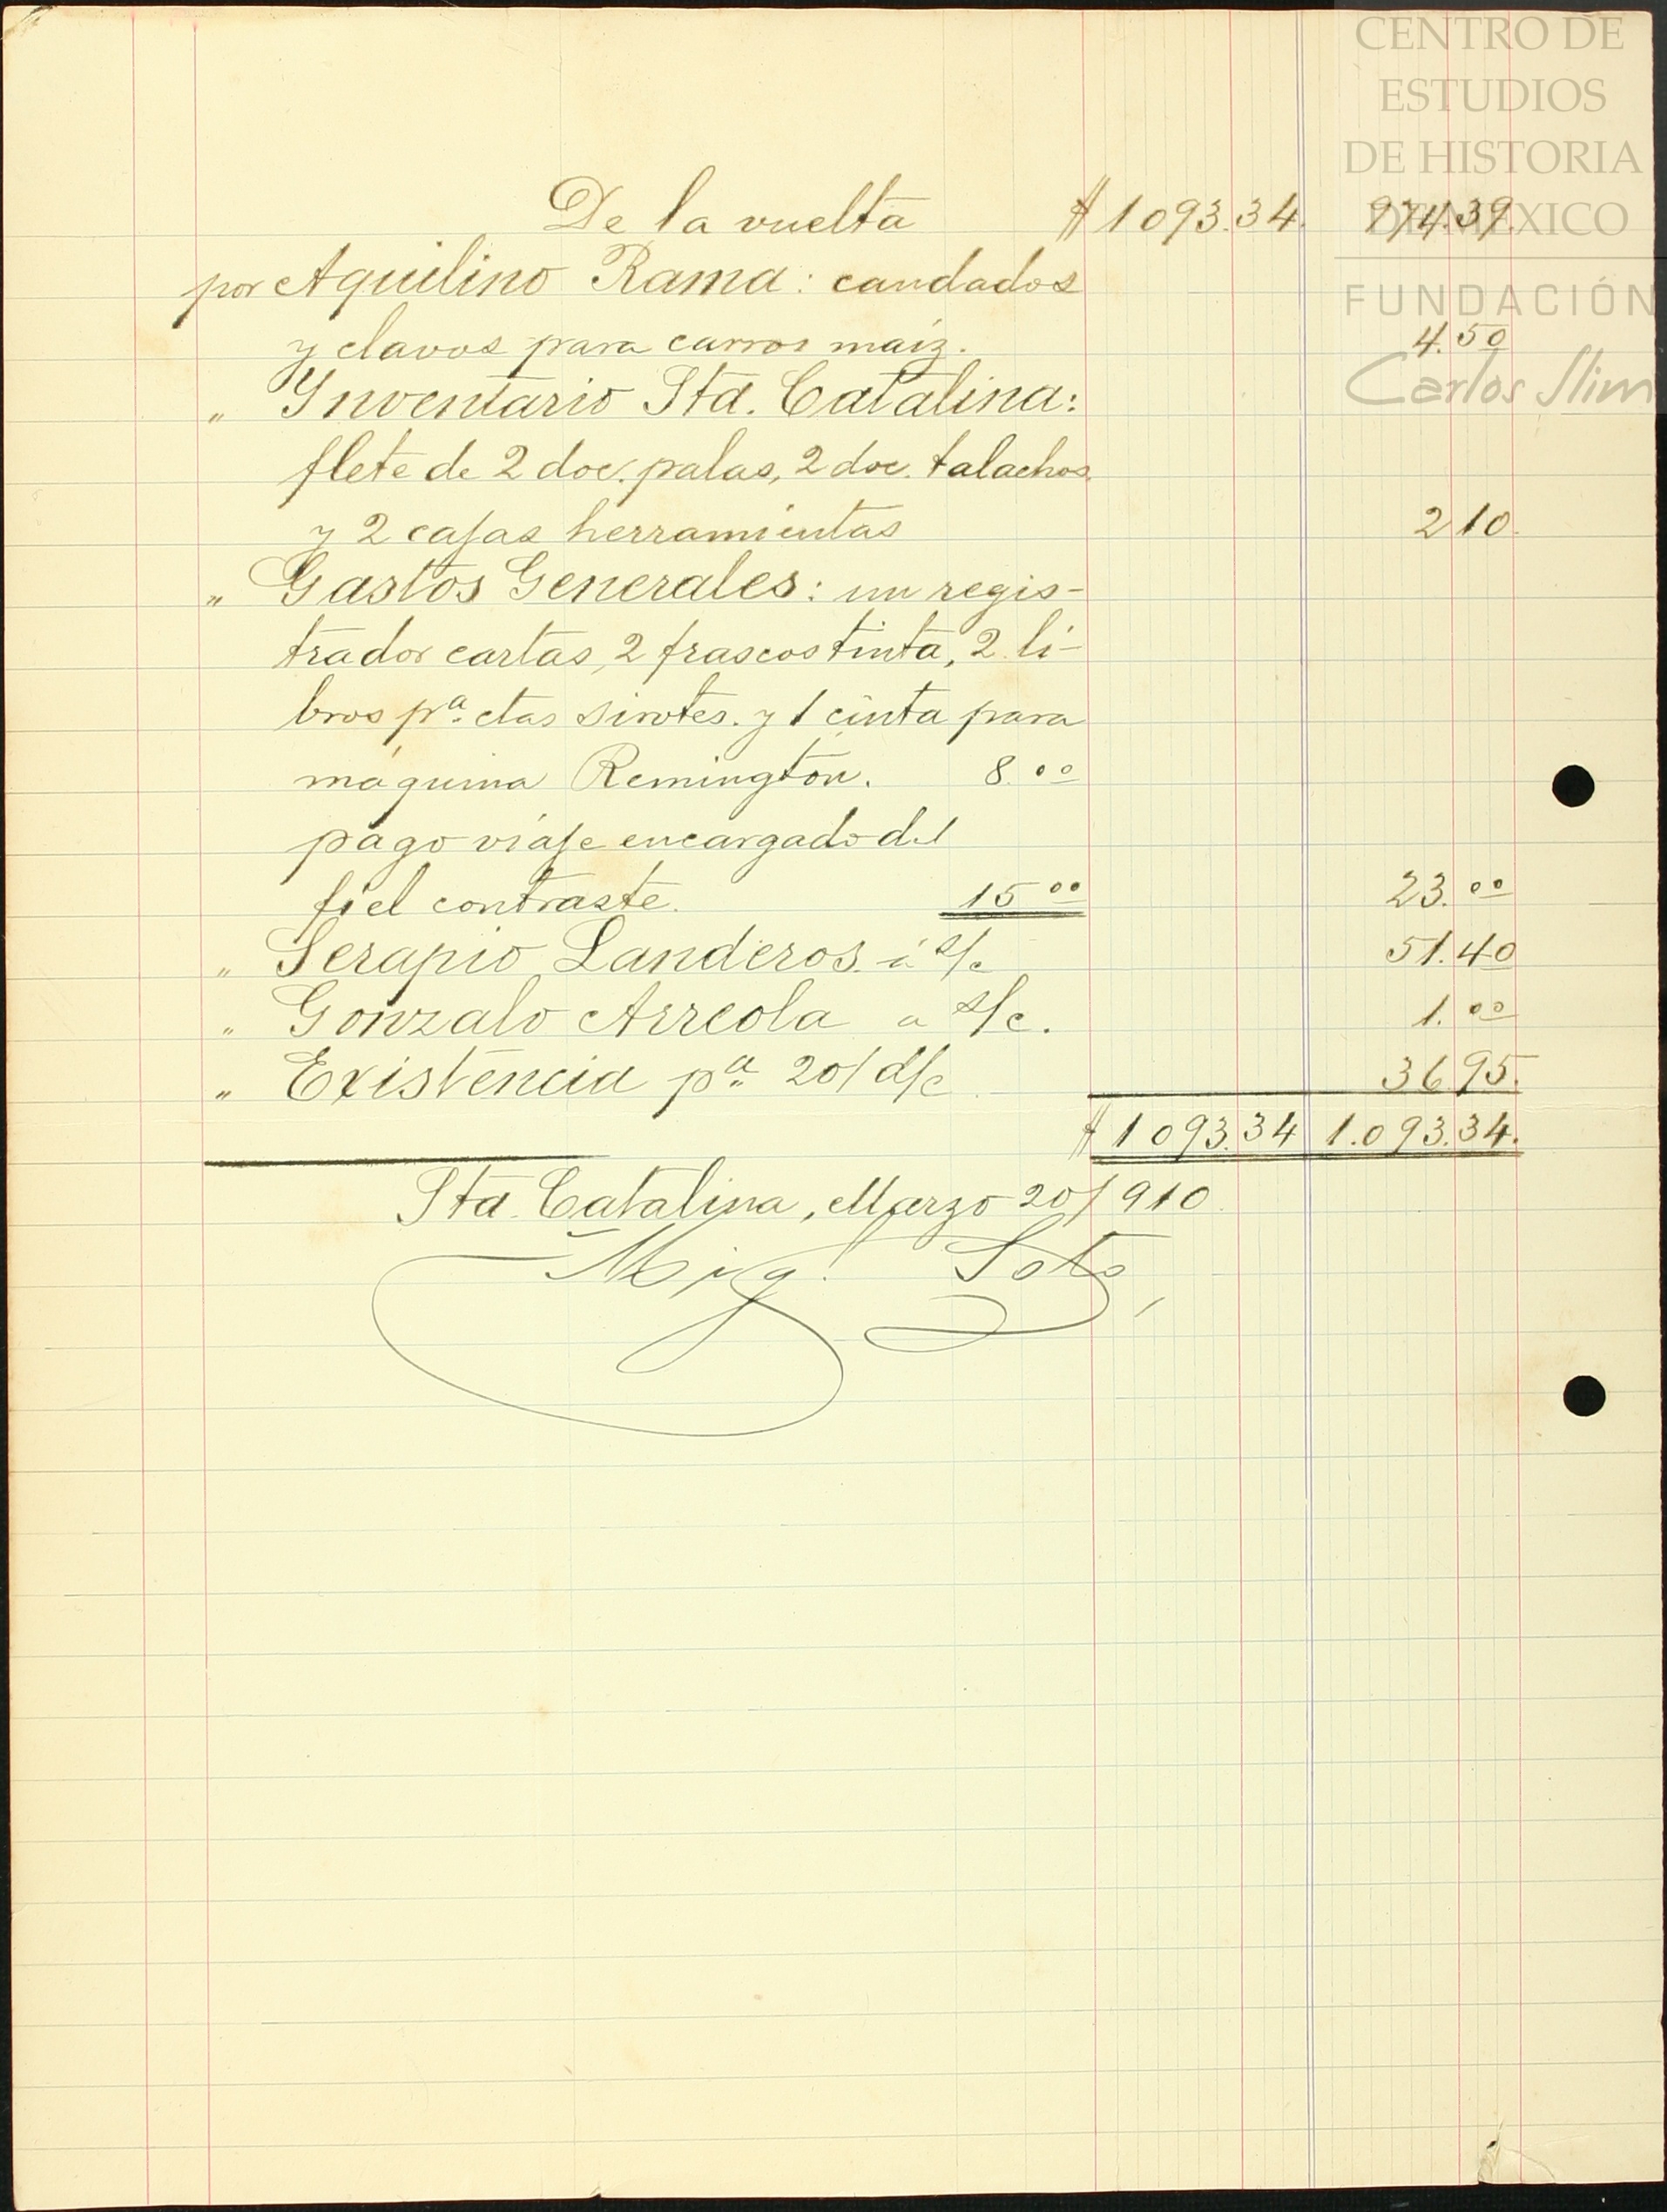 CENTRO DE
ESTUDIOS
DE HISTORIA
DE MÉXICO
FUNDACIÓN
Carlos Slim
De la vuelta $1093.34. 974.39.
por Aquilino Rama: candados
y clavos para carros maíz. 4.50
„ Inventario Sta. Catalina:
flete de 2 doc. palas, 2 doc. talachos
y 2 cajas herramientas 2 10.
„ Gastos Generales: un regis-
trador cartas, 2 frascos tinta, 2 li-
bros pª ctas sirvtes. y 1 cinta para
máquina Remington. 8.00
pago viaje encargado del
fiel contraste. 15 00 23.00
„ Serapio Landeros á s/c 51.40
„ Gonzalo Arreola a s/c. 1.00
„ Existencia pª 20/ d/c 36 95.
$1093.34 1.093.34.
Sta Catalina, Marzo 20/910.
Mig. Soto